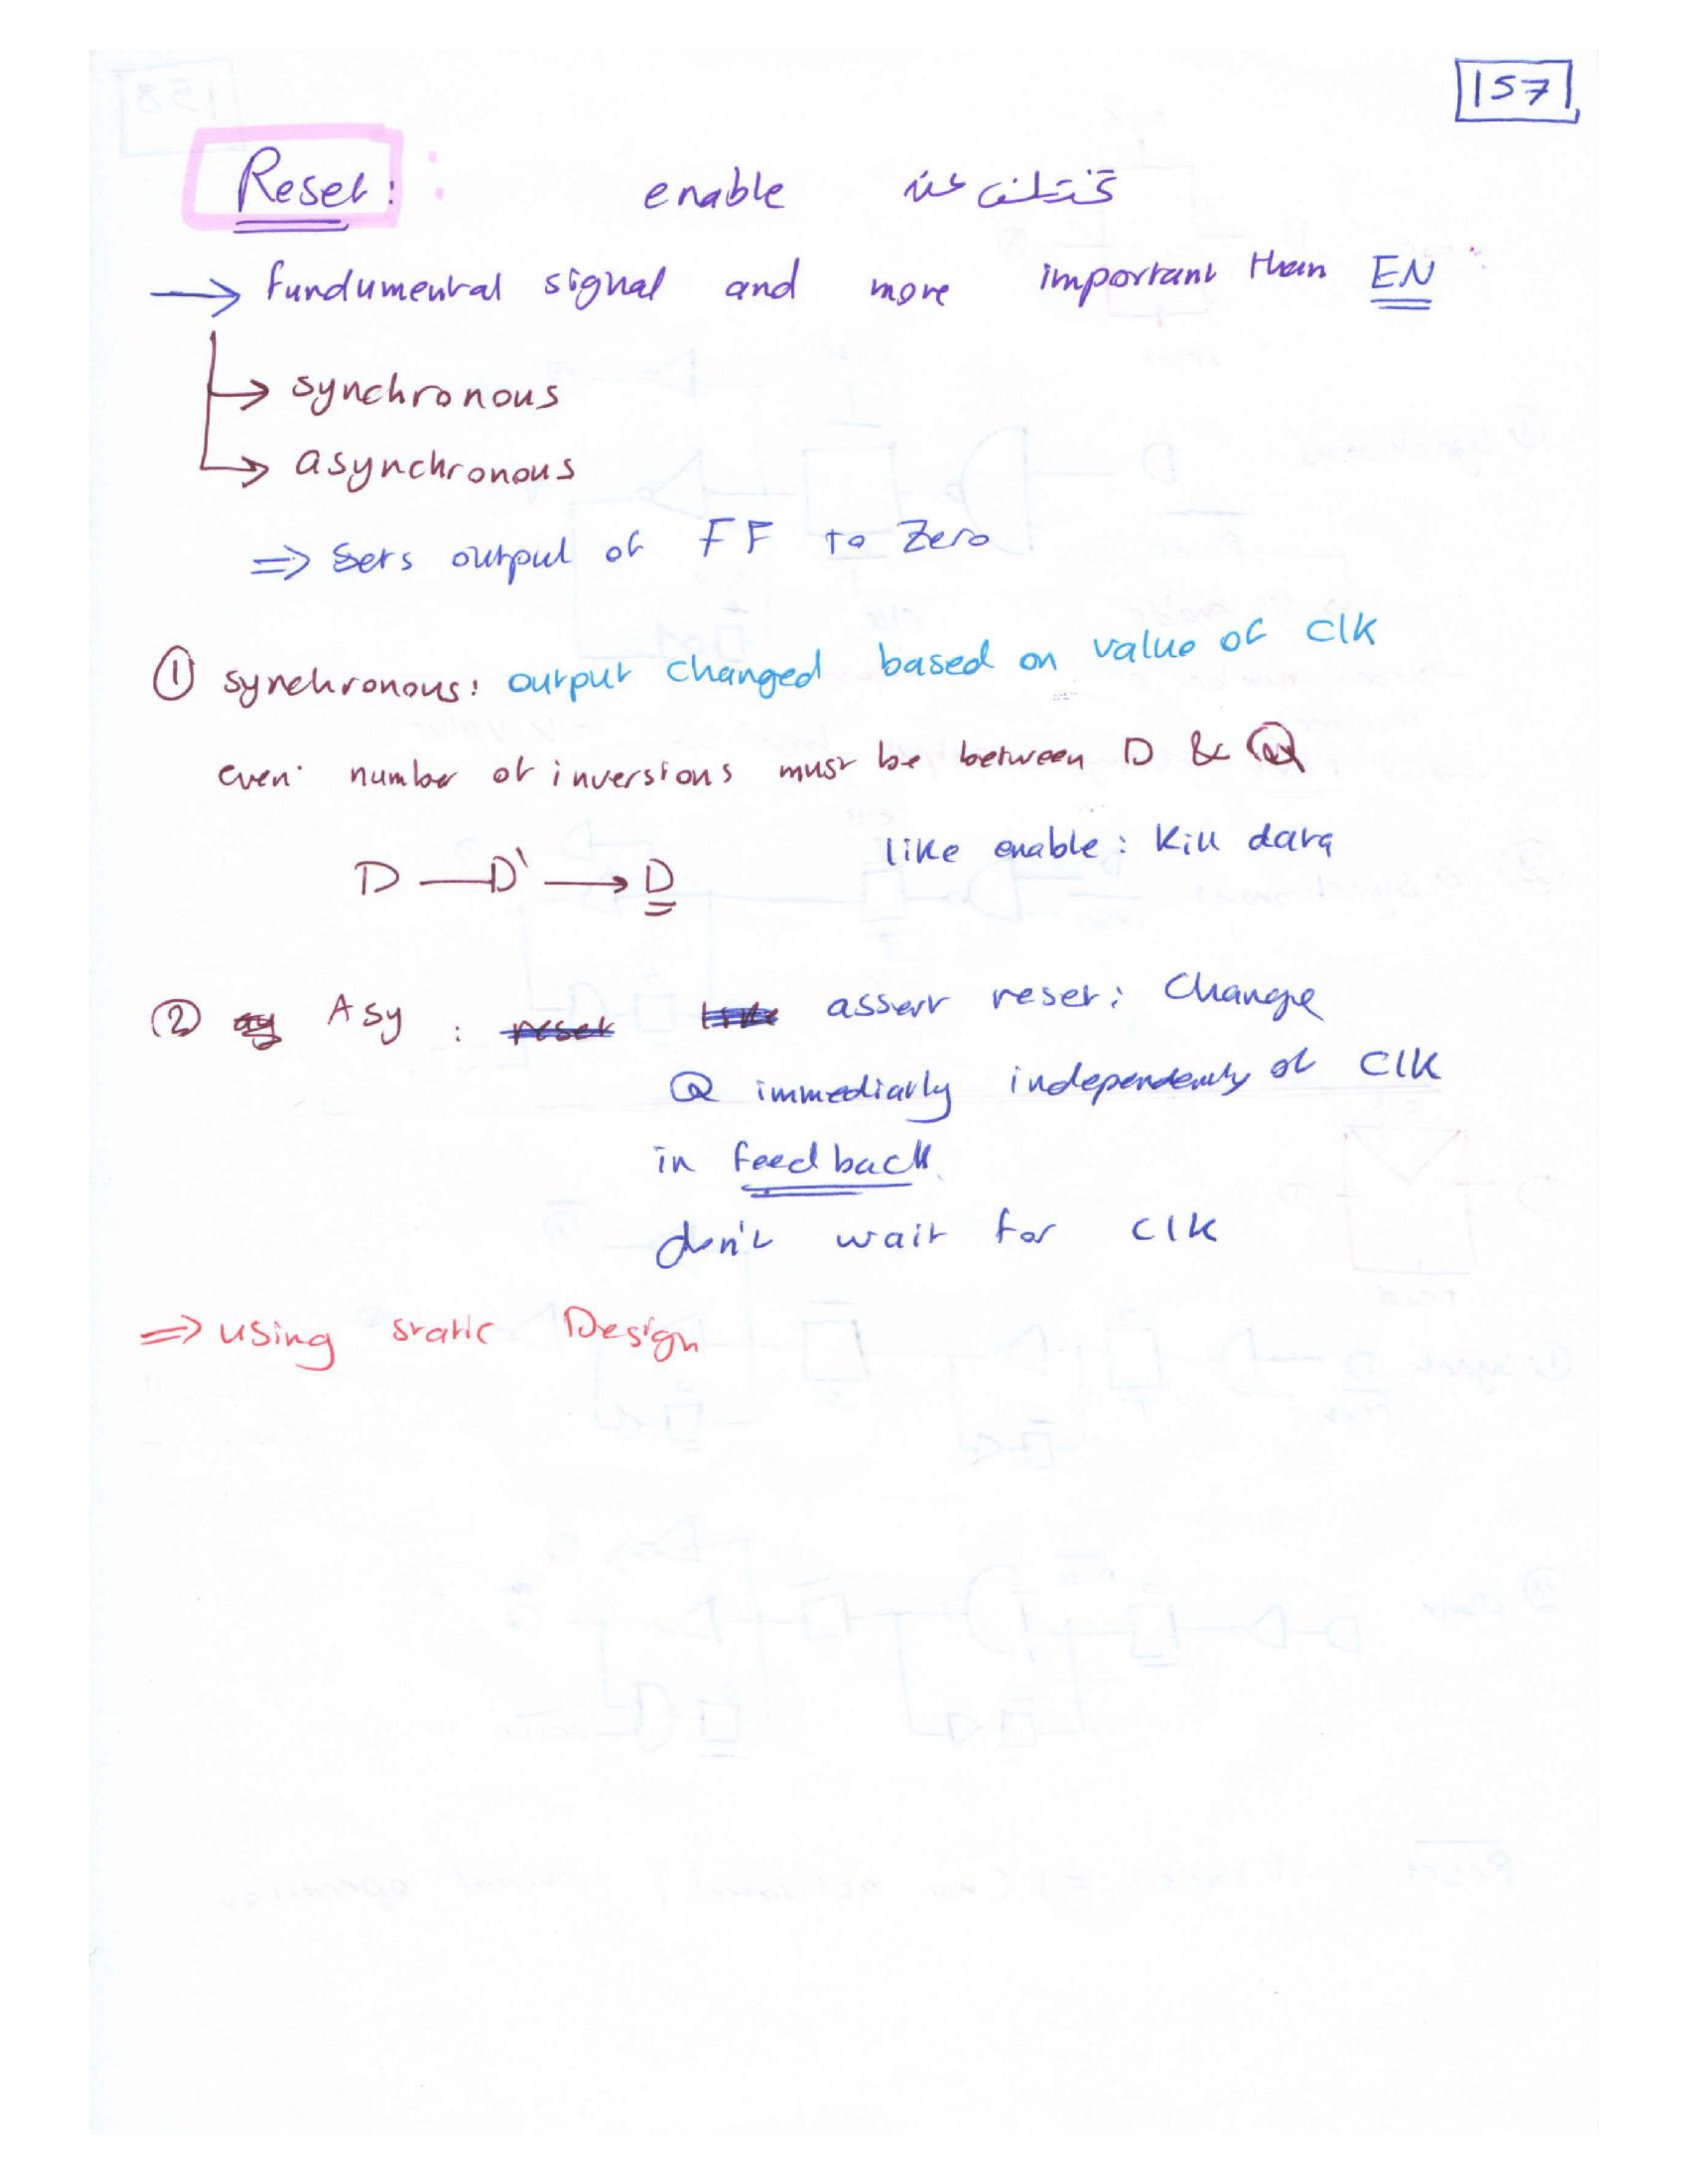 157
Reset: enable تختلف عن
→ fundumental signal and more important than EN
→ synchronous
→ asynchronous
⇒ sets output of FF to Zero
① synchronous: output changed based on value of clk
even number of inversions must be between D & Q
like enable: kill data
D — D' → D
② Asy : assert reset: Change
Q immediatly independently of clk
in feedback
don't wait for clk
⇒ using static Design